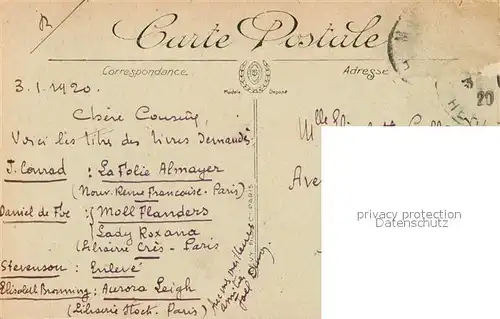 Carte Postale
Correspondance
Adresse
Modèle Déposé
3.1.1920.
Chère Cousine,
Voici les titres des livres demandés
J. Conrad : La Folie Almayer
(Nouv. Revue Francoise. Paris)
Daniel de Foe : { Moll Flanders
Lady Roxana
(Librairie Crès - Paris
Stevenson : Enlevé
Elisabeth Browning : Aurora Leigh
(Librairie Stock. Paris)
Avec mes meilleures
amitiés
PARIS
Mlle
Ave
20
privacy protection
Datenschutz